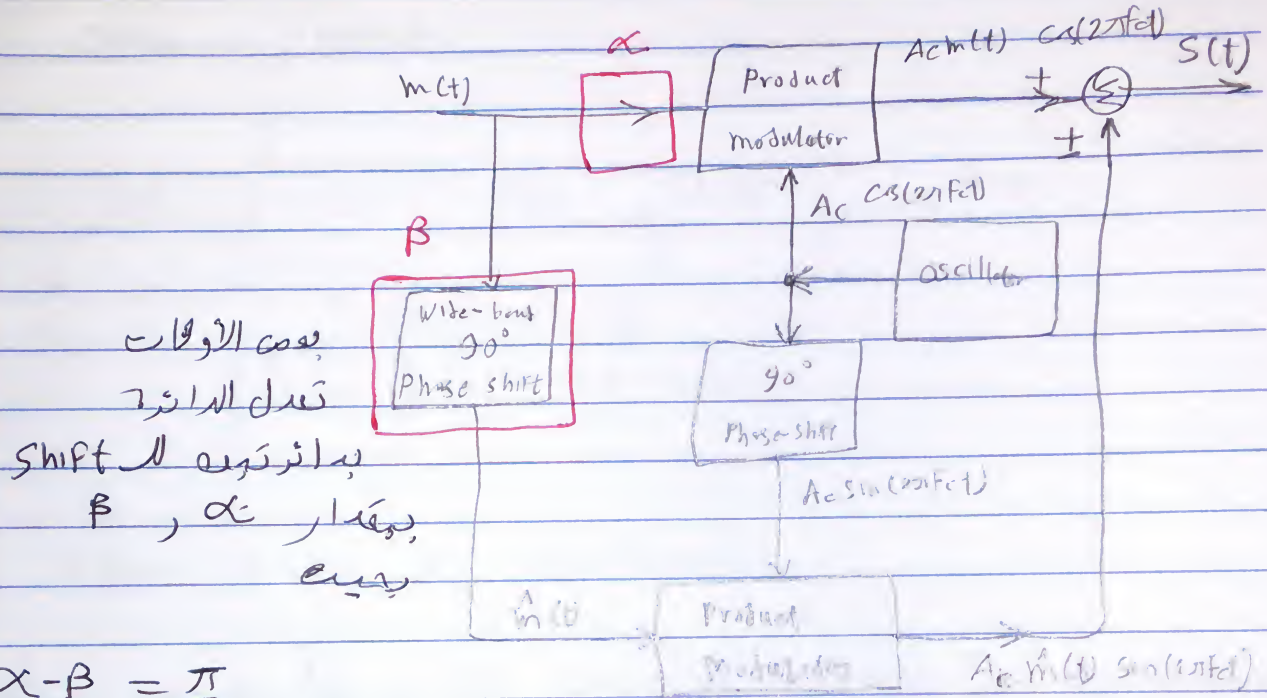 α
m(t)
Product
modulator
Ac m(t) cos(2πfct)
S(t)
+
±
Σ
Ac cos(2πfct)
oscillator
β
Wide-band
90°
Phase shift
90°
Phase-shift
Ac sin(2πfct)
بعض الأوقات
تعدل الدائرة
بدائرتين لل Shift
بمقدار α و β
بحيث
α-β = π
m̂(t)
Product
Modulator
Ac m̂(t) sin(2πfct)